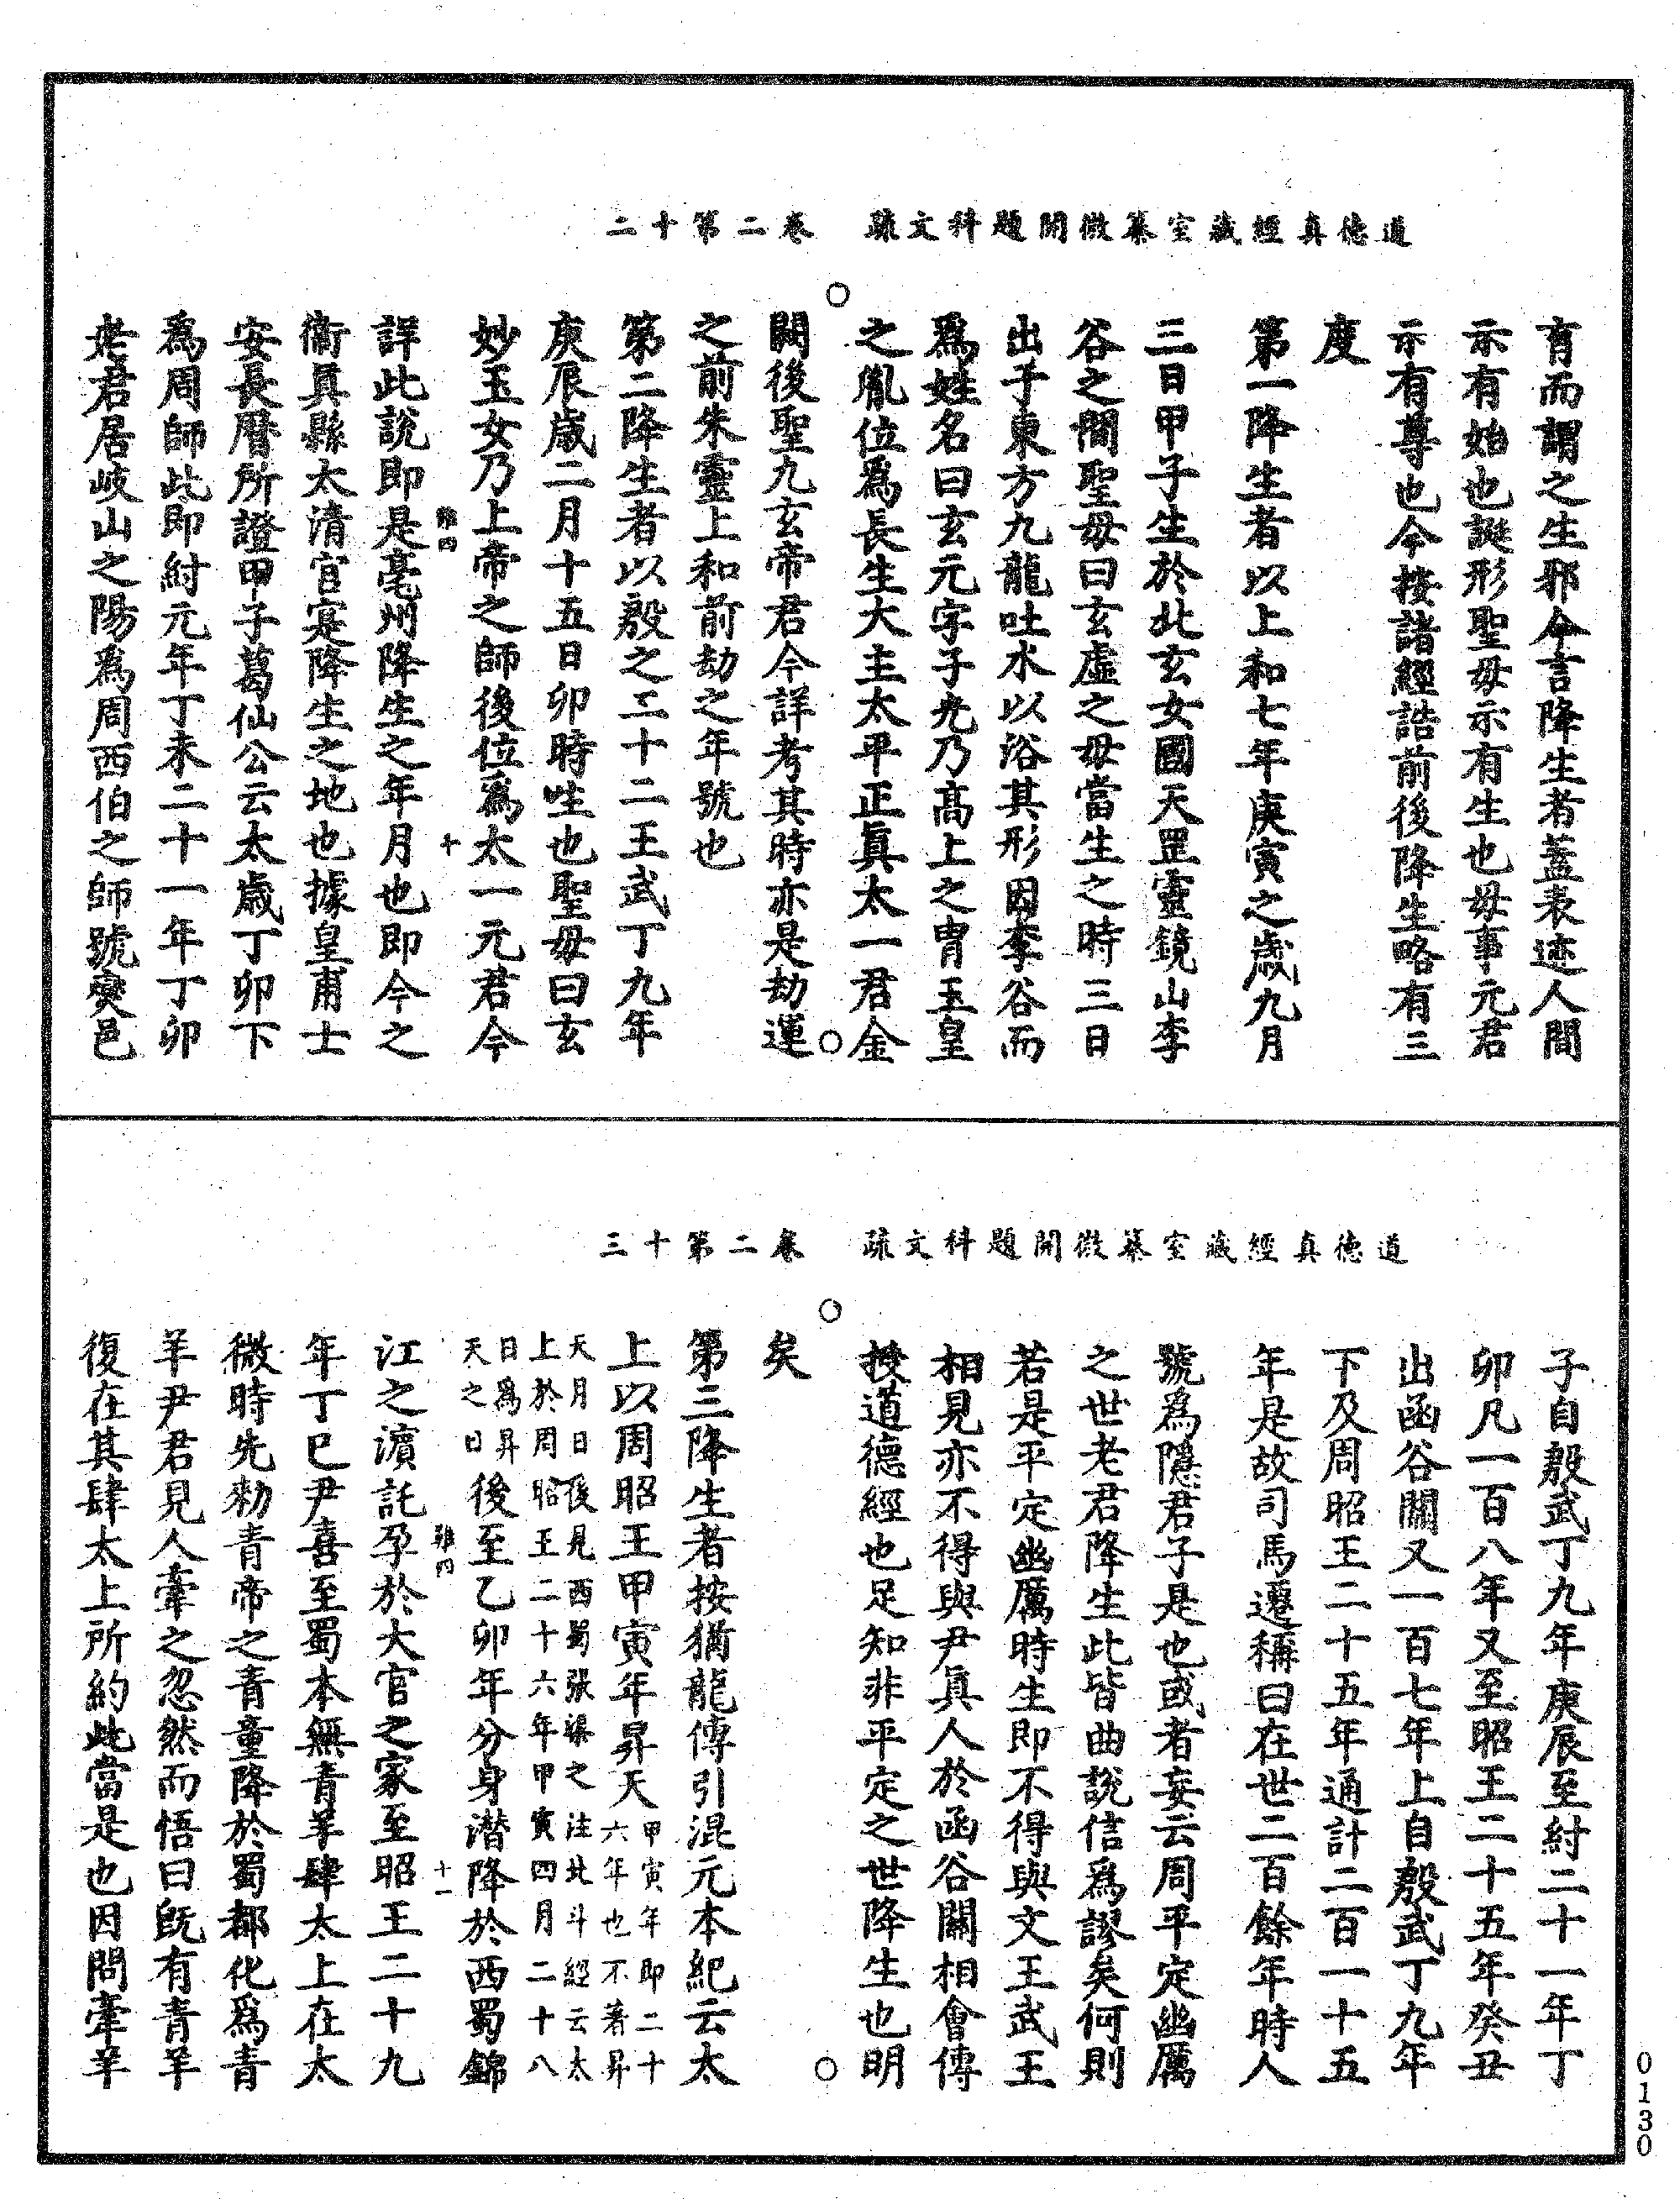 道德真經藏室纂微開題科文疏　卷二第十二
育而謂之生邪今言降生者蓋表迹人間
示有始也誕形聖母示有生也母事元君
示有尊也今按諸經誥前後降生略有三
度
第一降生者以上和七年庚寅之歲九月
三日甲子生於北玄女國天罡靈鏡山李
谷之間聖母曰玄虛之母當生之時三日
出于東方九龍吐水以浴其形因李谷而
爲姓名曰玄元字子光乃高上之胄玉皇
之胤位爲長生大主太平正眞太一君金
闕後聖九玄帝君今詳考其時亦是劫運
之前朱靈上和前劫之年號也
第二降生者以殷之二十二王武丁九年
庚辰歲二月十五日卯時生也聖母曰玄
妙玉女乃上帝之師後位爲太一元君今
難四　十
詳此說即是亳州降生之年月也即今之
衞眞縣太清宮寔降生之地也據皇甫士
安長曆所證甲子葛仙公云太歲丁卯下
爲周師此即紂元年丁未二十一年丁卯
老君居岐山之陽爲周西伯之師號爕邑
道德真經藏室纂微開題科文疏　卷二第十三
子自殷武丁九年庚辰至紂二十一年丁
卯凡一百八年又至昭王二十五年癸丑
出函谷關又一百七年上自殷武丁九年
下及周昭王二十五年通計二百一十五
年是故司馬遷稱曰在世二百餘年時人
號爲隱君子是也或者妄云周平定幽厲
之世老君降生此皆曲說信爲謬矣何則
若是平定幽厲時生即不得與文王武王
相見亦不得與尹眞人於函谷關相會傳
授道德經也足知非平定之世降生也明
矣
第三降生者按猶龍傳引混元本紀云太
上以周昭王甲寅年昇天甲寅年即二十
六年也不著昇
天月日後見西蜀張梁之注北斗經云太
上於周昭王二十六年甲寅四月二十八
日爲昇
天之日後至乙卯年分身潛降於西蜀錦
難四　十一
江之濱託孕於大官之家至昭王二十九
年丁巳尹喜至蜀本無青羊肆太上在太
微時先勑青帝之青童降於蜀都化爲青
羊尹君見人牽之忽然而悟曰旣有青羊
復在其肆太上所約此當是也因問牽羊
0130